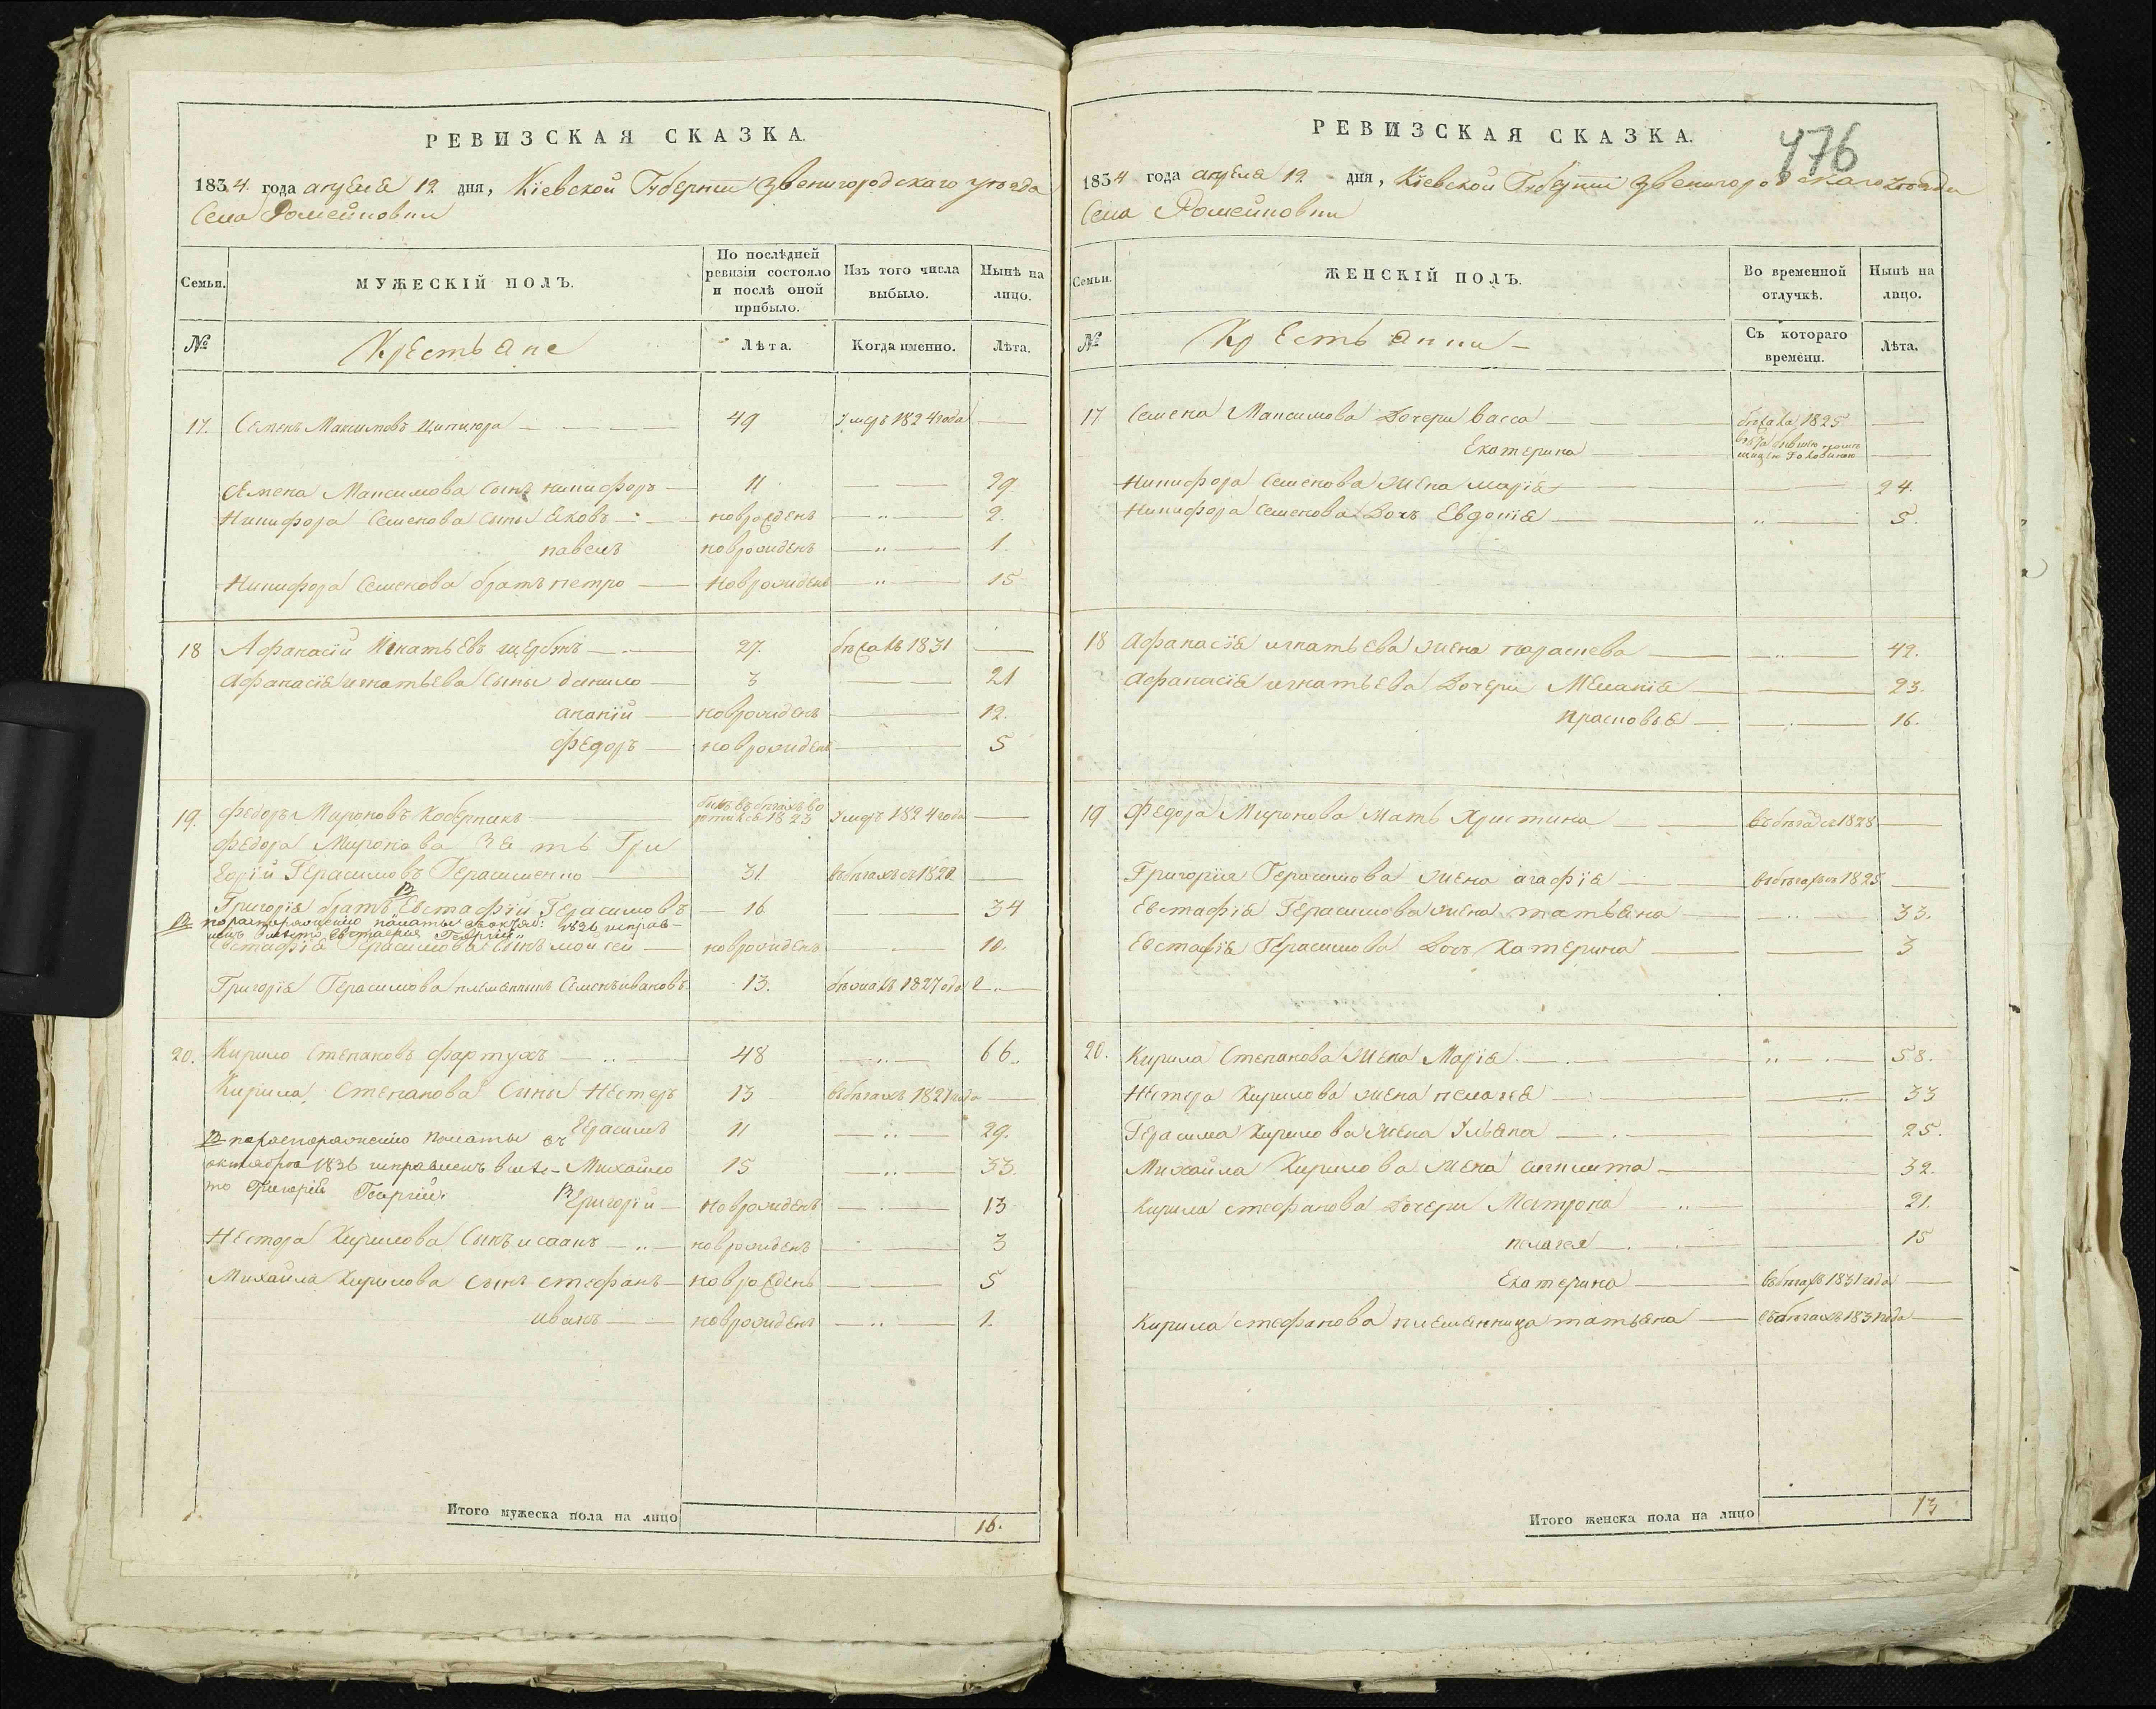 РЕВИЗСКАЯ СКАЗКА.
1834 года апреля 12 дня, Кіевской Губерніи Звенигородскаго уезда
Села Ромейновки
Семьи.
МУЖЕСКІЙ ПОЛЪ.
По послѣдней ревизіи состояло и послѣ оной прибыло.
Изъ того числа выбыло.
Нынѣ на лицо.
№
Крестьяне
Лѣта.
Когда именно.
Лѣта.
17. Семенъ Максимовъ 49 умеръ 1824 года
Семена Максимова сынъ никифоръ 11 29
Никифора Семенова сыны Яковъ новрожденъ 2.
павелъ новрожденъ 1.
Никифора Семенова братъ петро новрожденъ 15
18 Афанасій Игнатьевъ 27. бежалъ 1831
Афанасія игнатьева сыны данило 3 21
ананій новрожденъ 12.
федоръ новрожденъ 5
19. федоръ Мироновъ Коберникъ былъ въ бегахъ во 1823 умеръ 1824 года
федора Миронова Зять Гри
горій Герасимовъ Герасименко 31 въ бегахъ съ 1822
Григорія братъ Евстафій Герасимовъ 16 34
по распоряженію палаты 1836 исправ-
ленъ вместо Евстафия Георгій
Евстафія Герасимова сынъ мойсей новрожденъ 10.
Григорія Герасимова племянникъ Семенъ ивановъ 13. бежалъ 1827 года
20. Кирило Степановъ фартухъ 48 66.
Кирила Степанова сыны Нестеръ 13 въ бегахъ 1821 года
Герасимъ 11 29.
по распоряженію Палаты
октября 1836 исправленъ вмес- Михайло 15 33
то Григорія Георгій. Григорій новрожденъ 13
Нестора Кирилова сынъ исаакъ новрожденъ 3
Михайла Кирилова сынъ стефанъ новрожденъ 5
иванъ новрожденъ 1.
Итого мужеска пола на лицо 16.
РЕВИЗСКАЯ СКАЗКА.
476
1834 года апреля 12 дня, Кіевской Губерніи Звенигородскаго уезда
Села Ромейновки
Семьи.
ЖЕНСКІЙ ПОЛЪ.
Во временной отлучкѣ.
Нынѣ на лицо.
№
Крестьянки
Съ котораго времени.
Лѣта.
17 Семена Максимова Дочери васса бежала 1825
Екатерина
Никифора Семенова жена марія 24.
Никифора Семенова Дочь Евдокія 5.
18 Афанасія игнатьева жена параскева 42.
Афанасія игнатьева Дочери Меланія 23.
прасковья 16.
19 Федора Миронова Мать Христина въ бегахъ 1828
Григорія Герасимова жена агафія въ бегахъ съ 1825
Евстафія Герасимова жена татьяна 33.
Евстафія Герасимова Дочь Катерина 3
20. Кирила Степанова жена Марія 58.
Нестера Кирилова жена пелагея 33
Герасима Кирилова жена Ульяна 25.
Михайла Кирилова жена 32.
Кирила стефанова Дочери Матрона 21.
пелагея 15
Екатерина въ бегахъ 1831 года
Кирила стефанова племянница татьяна въ бегахъ 1831 года
Итого женска пола на лицо 13